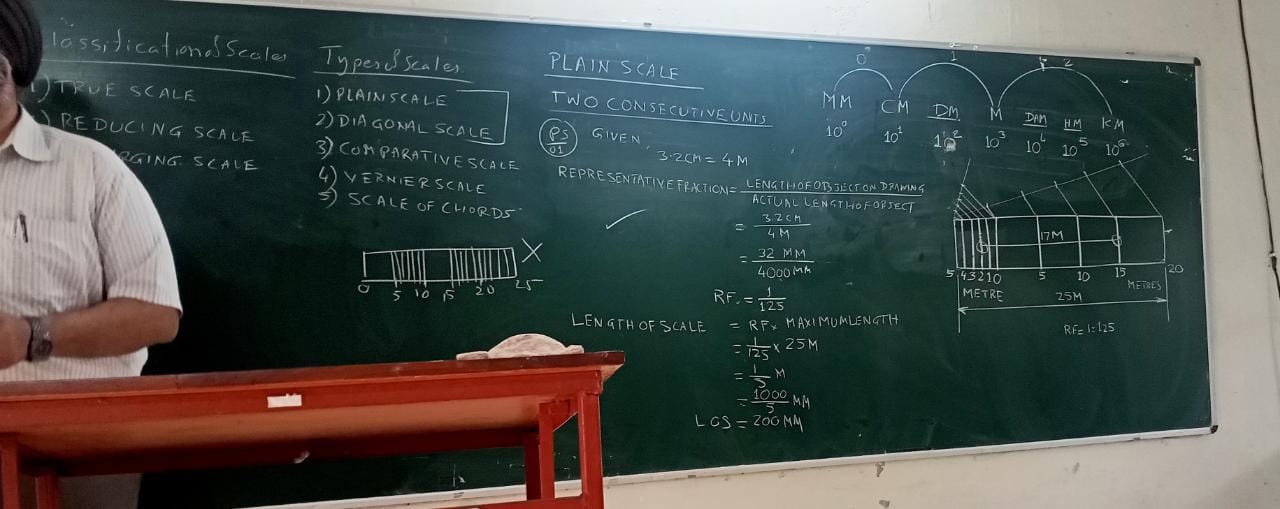 lassification of Scales
1) TRUE SCALE
) REDUCING SCALE
RGING SCALE
Types of Scales
1) PLAIN SCALE
2) DIAGONAL SCALE
3) COMPARATIVE SCALE
4) VERNIER SCALE
5) SCALE OF CHORDS
0 5 10 15 20 25
X
PLAIN SCALE
TWO CONSECUTIVE UNITS
PS/01 GIVEN
3.2CM = 4M
REPRESENTATIVE FRACTION = LENGTH OF OBJECT ON DRAWING / ACTUAL LENGTH OF OBJECT
= 3.2CM / 4M
= 32 MM / 4000 MM
RF. = 1/125
LENGTH OF SCALE = RF x MAXIMUM LENGTH
= 1/125 x 25M
= 1/5 M
= 1000/5 MM
LOS = 200MM
0 1 2
MM CM DM M DAM HM KM
10⁰ 10¹ 10² 10³ 10⁴ 10⁵ 10⁶
17M
5 4 3 2 1 0 5 10 15 20
METRE METRES
25M
RF = 1:125